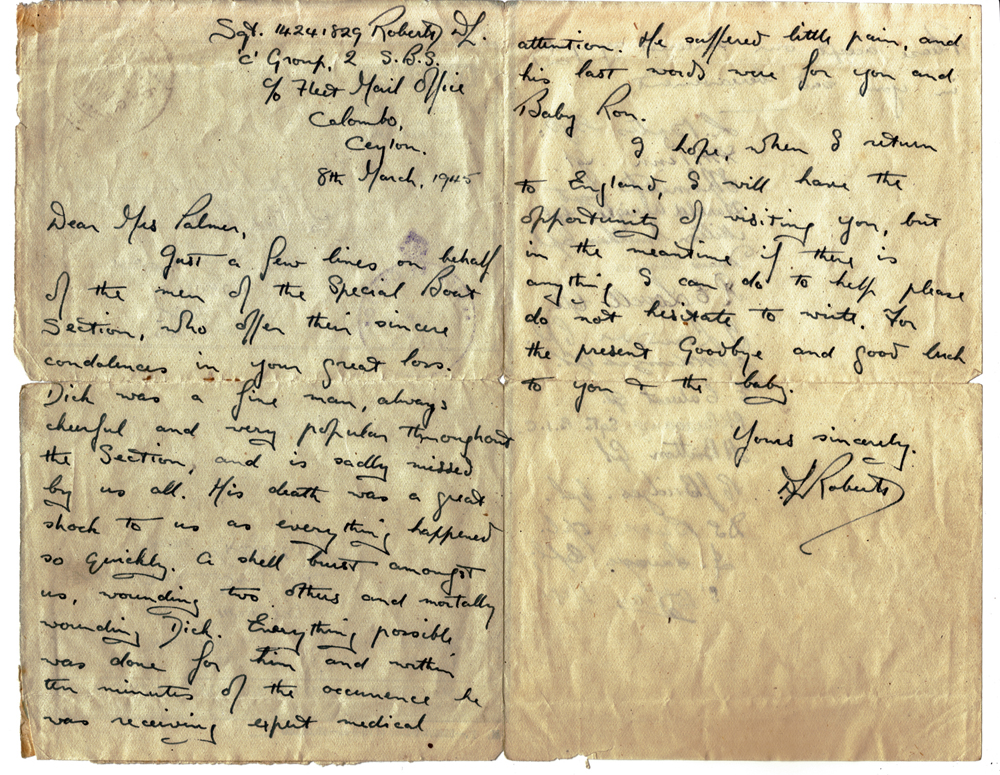 Sgt. 14241829 Roberts D.L.
'C' Group, 2 S.B.S.
c/o Fleet Mail Office
Colombo,
Ceylon.
8th March, 1945
Dear Mrs Palmer,
Just a few lines on behalf
of the men of the Special Boat
Section, who offer their sincere
condolences in your great loss.
Dick was a fine man, always
cheerful and very popular throughout
the Section, and is sadly missed
by us all. His death was a great
shock to us as everything happened
so quickly. A shell burst amongst
us, wounding two others and mortally
wounding Dick. Everything possible
was done for him and within
ten minutes of the occurrence he
was receiving expert medical
attention. He suffered little pain, and
his last words were for you and
Baby Ron.
I hope, when I return
to England, I will have the
opportunity of visiting you, but
in the meantime if there is
anything I can do to help please
do not hesitate to write. For
the present Goodbye and good luck
to you & the baby.
Yours sincerely.
DL Roberts